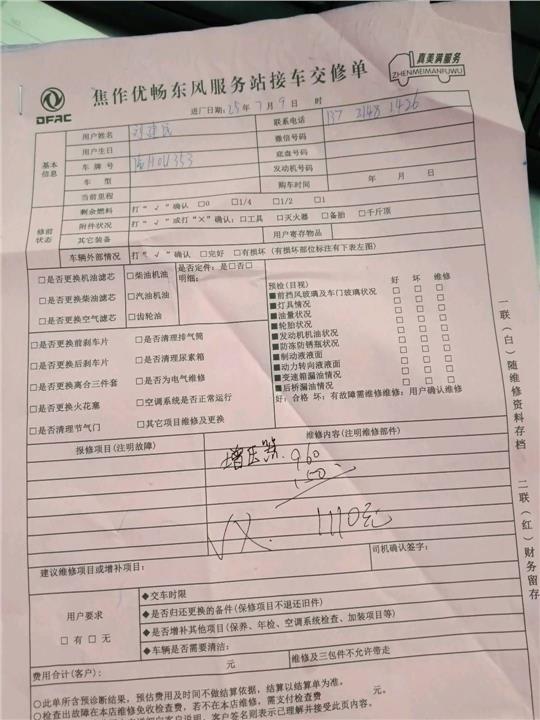 焦作优畅东风服务站接车交修单
DFAC
真美满服务
ZHENMEIMANFUWU
进厂日期：25年 7月 9日 时
基本信息
用户姓名 联系电话 137 2148 1426
用户生日 微信号码
车牌号 底盘号码
车 型 发动机号码
购车时间 年 月 日
修前状态
当前里程 打“√”确认 □0 □1/4 □1/2 □1
剩余燃料
附件状况 打“√”或打“×”确认：□工具 □灭火器 □备胎 □千斤顶
其它装备 用户寄存物品
车辆外部情况 打“√”确认 □完好 □有损坏（有损坏部位标注有下表左图）
□是否更换机油滤芯 □柴油机油 是否定件：是□否□
明细：
□是否更换柴油滤芯 □汽油机油
□是否更换空气滤芯 □齿轮油
□是否更换前刹车片 □是否清理排气筒
□是否更换后刹车片 □是否清理尿素箱
□是否更换离合三件套 □是否为电气维修
□是否更换火花塞 □空调系统是否正常运行
□是否清理节气门 □其它项目维修及更换
预检(目视) 好 坏 维修
■前挡风玻璃及车门玻璃状况 □ □ □
■灯具情况 □ □ □
■油量状况 □ □ □
■轮胎状况 □ □ □
■发动机机油状况 □ □ □
■防冻防锈瓶状况 □ □ □
■制动液液面 □ □ □
■动力转向液液面 □ □ □
■变速箱漏油情况 □ □ □
■后桥漏油情况 □ □ □
好：合格 坏：有故障需维修维修：用户确认维修
报修项目（注明故障） 维修内容(注明维修部件)
增压器. 960
150
1110元
建议维修项目或增补项目： 司机确认签字：
用户要求
□有 □无
◆交车时限
◆是否归还更换的备件（保修项目不退还旧件）
◆是否增补其他项目（保养、年检、空调系统检查、加装项目等）
◆车辆是否需要清洁：
费用合计(客户)： 元 维修及三包件不允许带走
○此单所含预诊断结果，预估费用及时间不做结算依据，结算以结算单为准。
○检查出故障在本店维修免收检查费，若不在本店维修，需支付检查费 元。
客户签名则表示已理解并接受此页内容。
一联（白）随维修资料存档
二联（红）财务留存